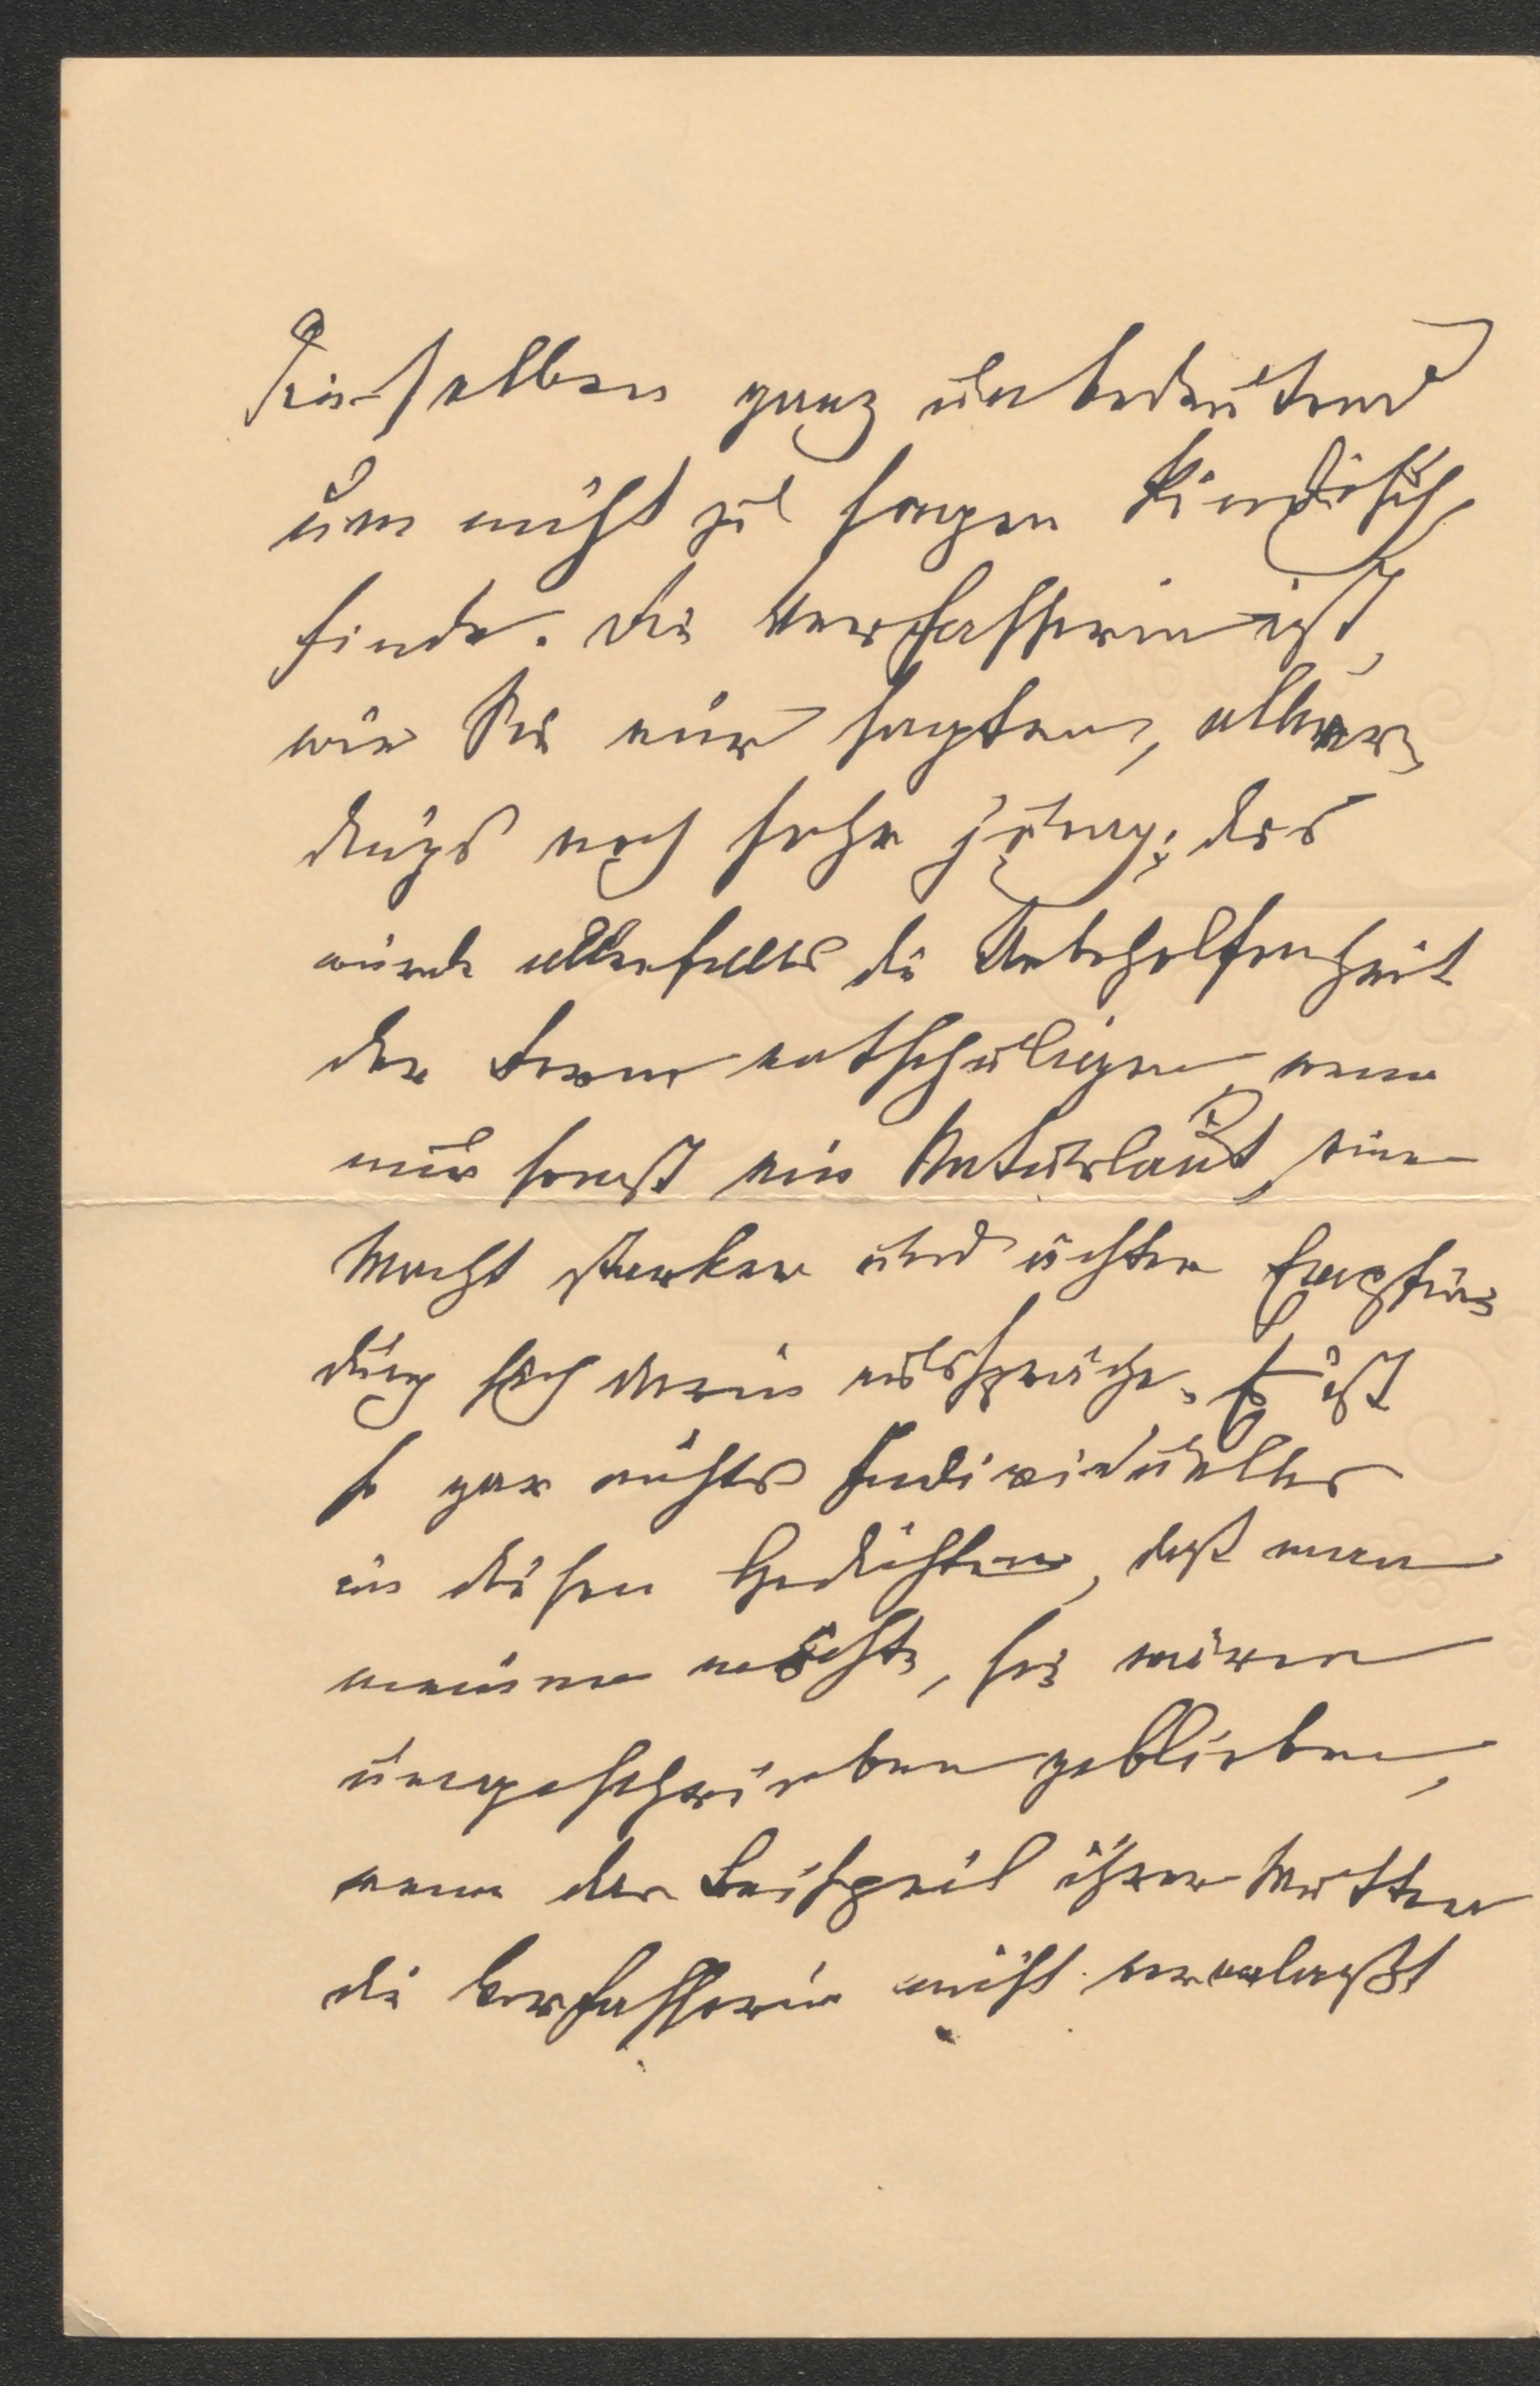 dieselben ganz unbedeutend
um nicht zu sagen kindisch
finde. Die Verfasserin ist,
wie Sie mir sagten, aller-
dings noch sehr jung; das
würde allenfalls die Unbeholfenheit
der Form entschuldigen, wenn
nur sonst ein Naturlaut, eine
Macht starker und ächter Empfin-
dung sich darin ausspräche. Es ist
so gar nichts Individuelles
in diesen Gedichten, daß man
meinen möchte, sie wären
ungeschrieben geblieben,
wenn das Beispiel ihrer Mutter
die Verfasserin nicht veranlaßt